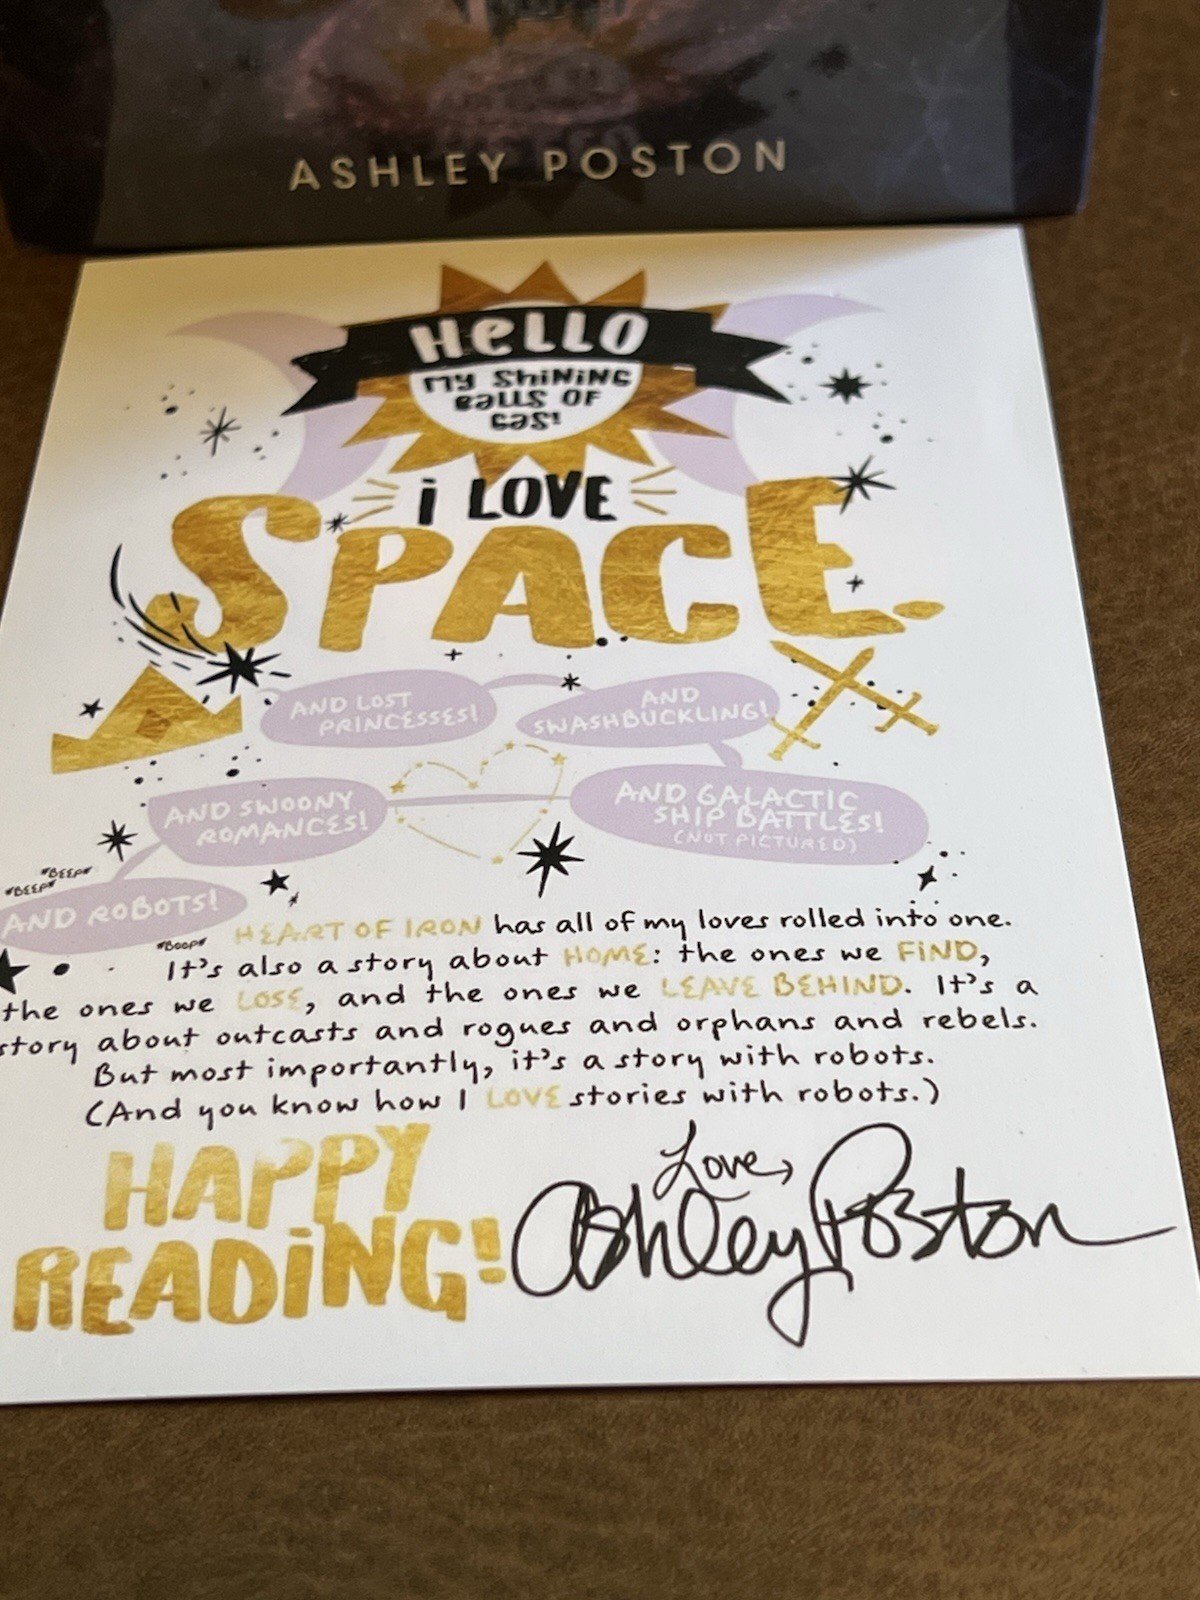 ASHLEY POSTON
HELLO
MY SHINING
BALLS OF
GAS!
I LOVE
SPACE.
AND LOST
PRINCESSES!
AND
SWASHBUCKLING!
AND SWOONY
ROMANCES!
AND GALACTIC
SHIP BATTLES!
(NOT PICTURED)
*BEEP*
*BEEP*
AND ROBOTS!
*BOOP*
HEART OF IRON has all of my loves rolled into one.
It's also a story about HOME: the ones we FIND,
the ones we LOSE, and the ones we LEAVE BEHIND. It's a
story about outcasts and rogues and orphans and rebels.
But most importantly, it's a story with robots.
(And you know how I LOVE stories with robots.)
HAPPY
READING!
Love,
Ashley Poston